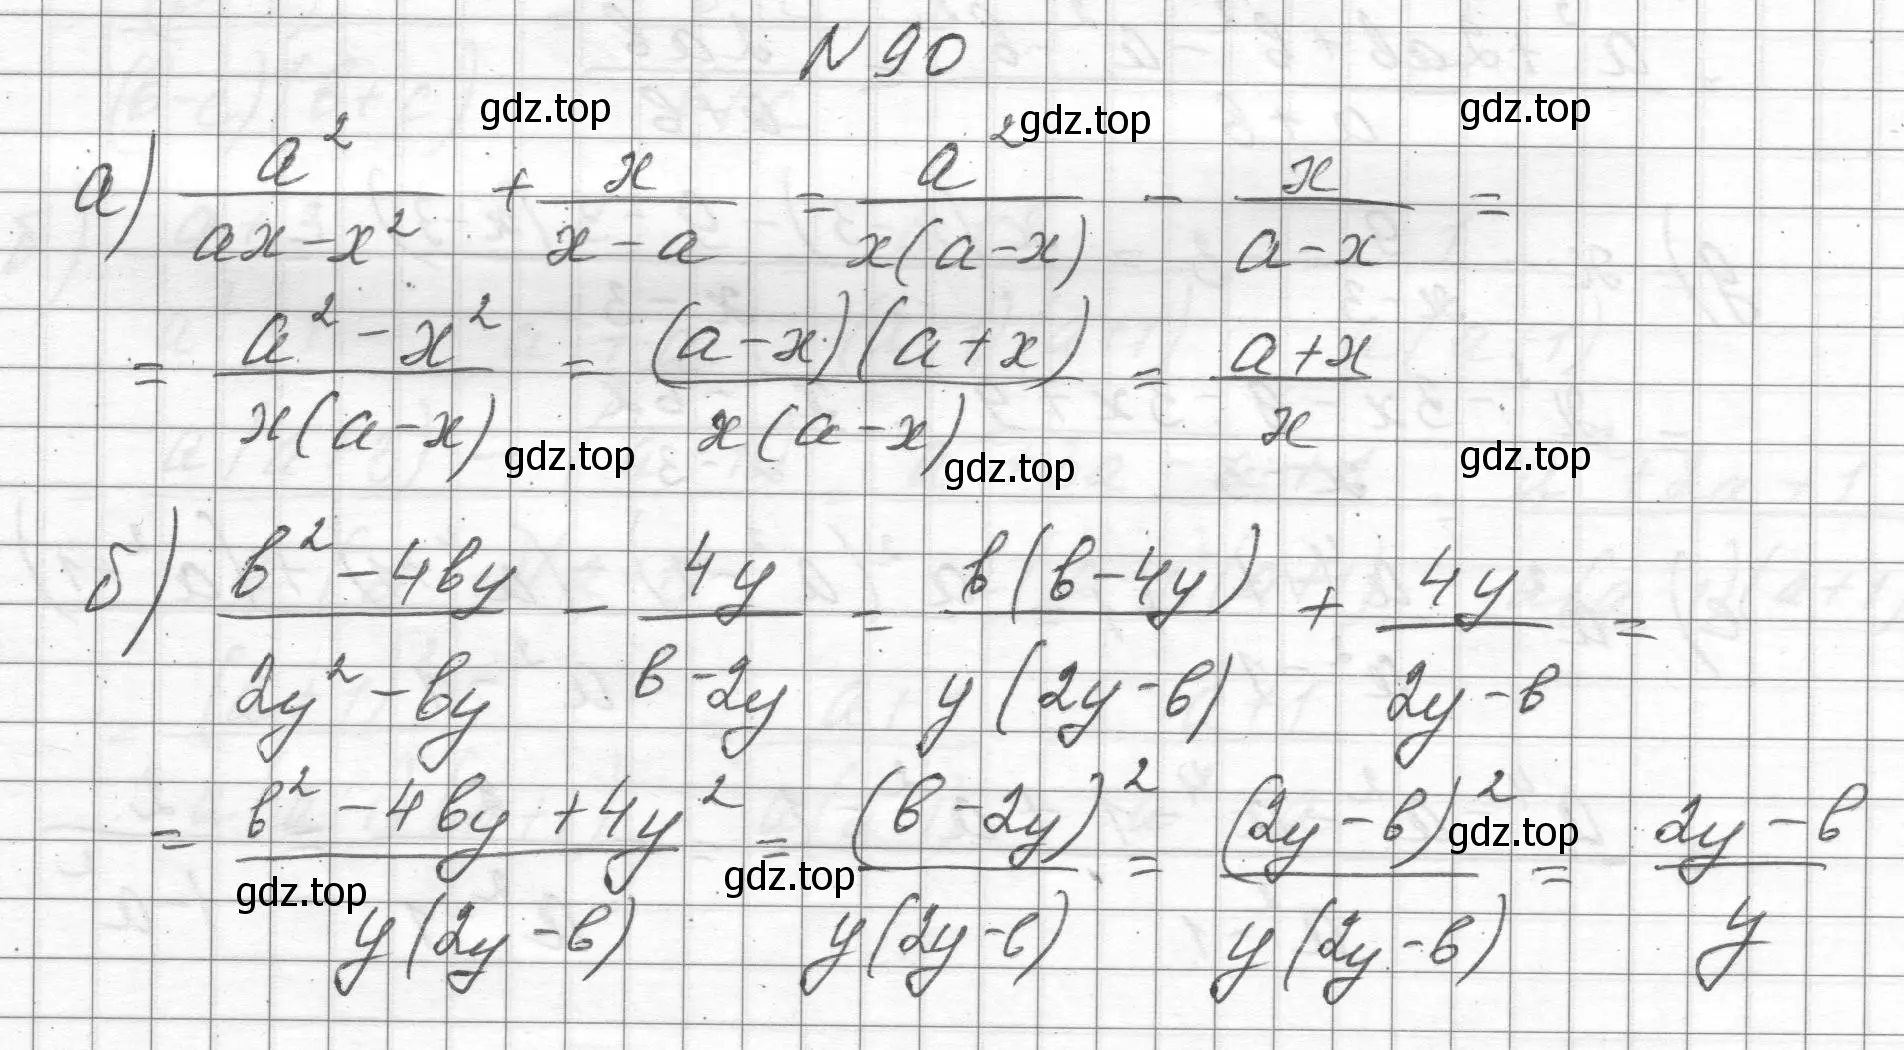 N 90
gdz.top gdz.top gdz.top
а) a²/(ax - x²) + x/(x - a) = a²/(x(a - x)) - x/(a - x) =
= (a² - x²)/(x(a - x)) = ((a - x)(a + x))/(x(a - x)) = (a + x)/x
gdz.top gdz.top gdz.top
б) (в² - 4вy)/(2y² - вy) - 4y/(в - 2y) = (в(в - 4y))/(y(2y - в)) + 4y/(2y - в) =
= (в² - 4вy + 4y²)/(y(2y - в)) = (в - 2y)²/(y(2y - в)) = (2y - в)²/(y(2y - в)) = (2y - в)/y
gdz.top gdz.top gdz.top